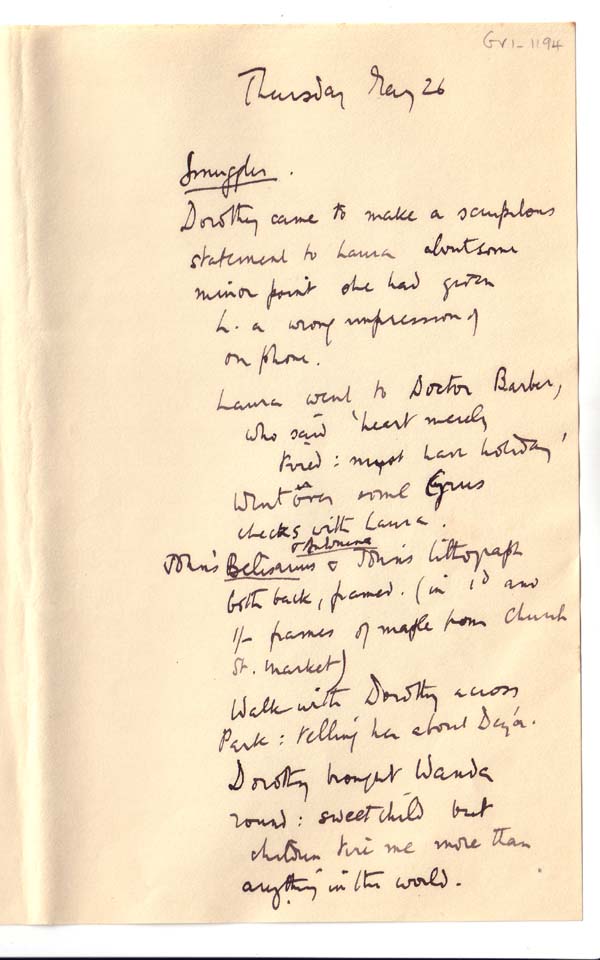 GV1-1194
Thursday May 26
Smuggler.
Dorothy came to make a scrupulous
statement to Laura about some
minor point she had given
L. a wrong impression of
on phone.
Laura went to Doctor Barber,
who said 'heart merely
tired: must have holiday'
Went over some Cyrus
checks with Laura.
& Antonina
John's Belisarius & John's lithograph
both back, framed. (in 1d and
1/- frames of maple from Church
St. market)
Walk with Dorothy across
Park: telling her about Deyá.
Dorothy brought Wanda
round: sweet child but
children tire me more than
anything in the world.